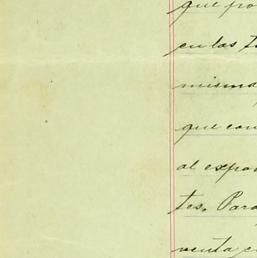 que po
en las
misma
que con
al expon
tes. Para
venta e